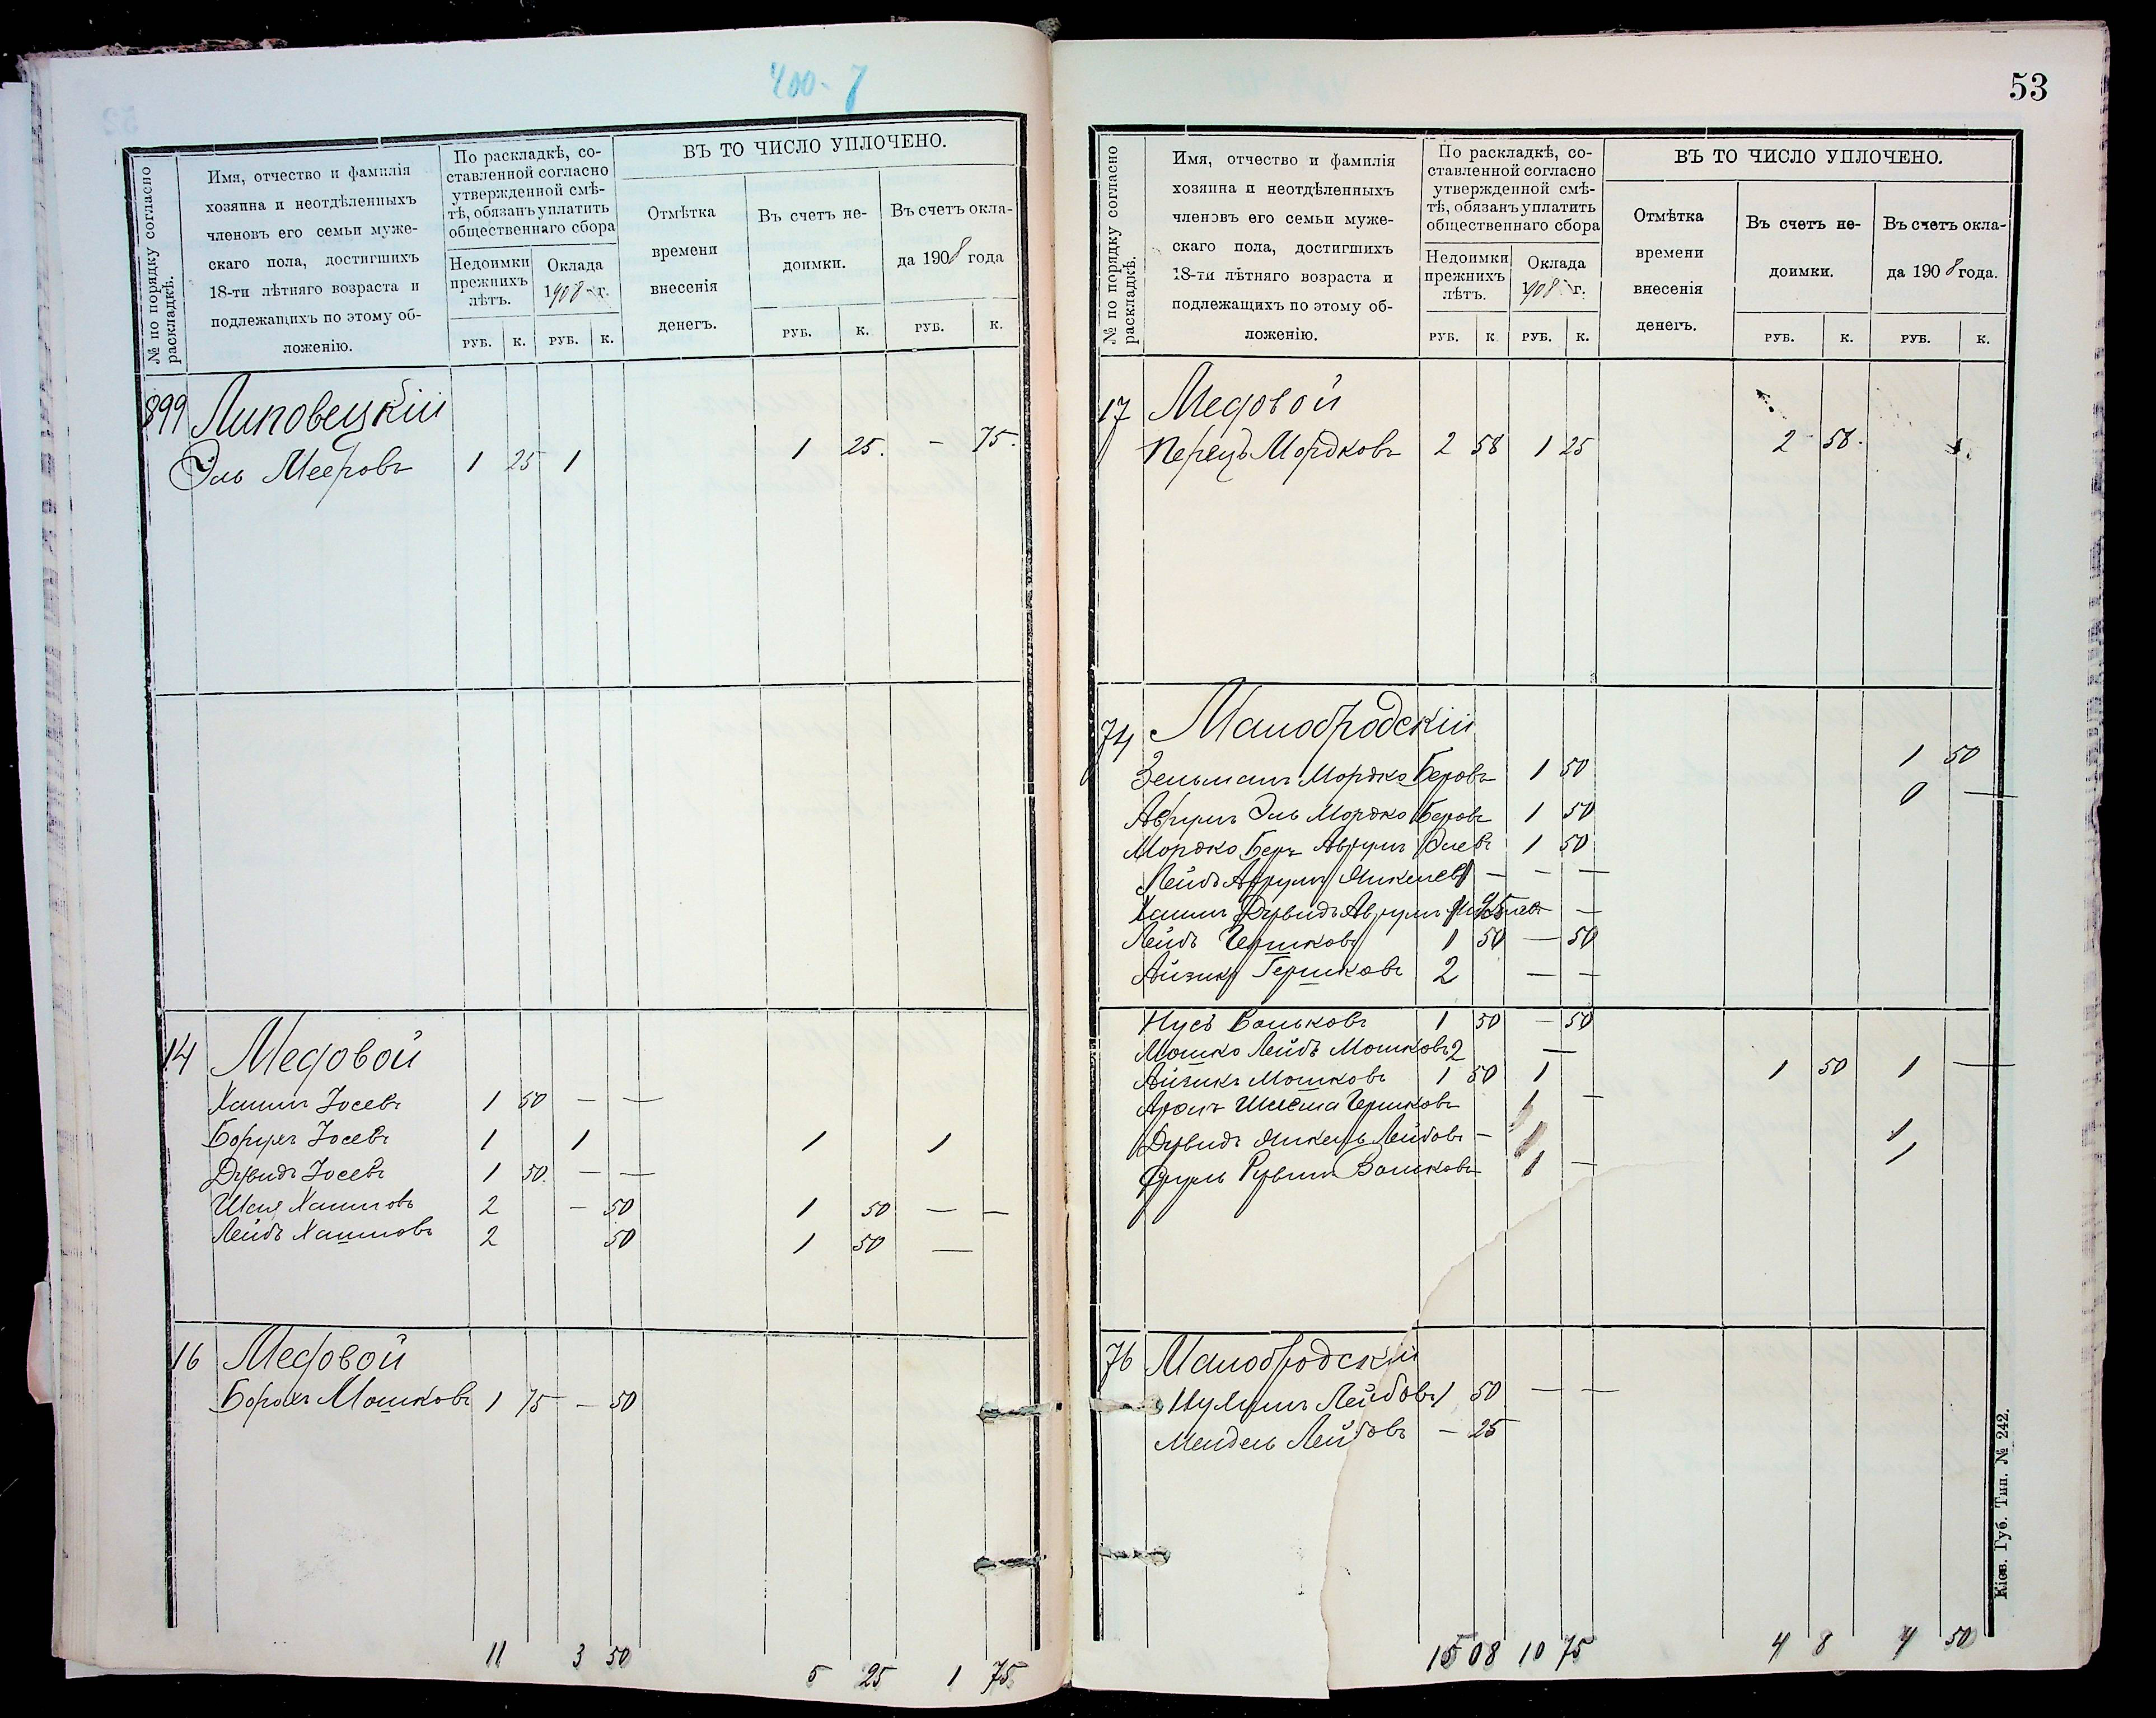 400-7
№ по порядку согласно раскладкѣ.
Имя, отчество и фамилія
хозяина и неотдѣленныхъ
членовъ его семьи муже-
скаго пола, достигшихъ
18-ти лѣтняго возраста и
подлежащихъ по этому об-
ложенію.
По раскладкѣ, со-
ставленной согласно
утвержденной смѣ-
тѣ, обязанъ уплатить
общественнаго сбора
Недоимки
прежнихъ
лѣтъ.
Оклада
1908 г.
РУБ. К. РУБ. К.
ВЪ ТО ЧИСЛО УПЛОЧЕНО.
Отмѣтка
времени
внесенія
денегъ.
Въ счетъ не-
доимки.
РУБ. К.
Въ счетъ окла-
да 1908 года
РУБ. К.
899 Липовецкій
Эль Мееровъ 1 25 1 1 25. — 75.
14 Медовой
Хаимъ Іосевъ 1 50 — —
Борухъ Іосевъ 1 1 1 1
Дувидъ Іосевъ 1 50. — —
Шая Хаимовъ 2 — 50 1 50 — —
Лейбъ Хаимовъ 2 50 1 50 —
16 Медовой
Борохъ Мошковъ 1 75 — 50
11 3 50 5 25 1 75
53
№ по порядку согласно раскладкѣ.
Имя, отчество и фамилія
хозяина и неотдѣленныхъ
членовъ его семьи муже-
скаго пола, достигшихъ
18-ти лѣтняго возраста и
подлежащихъ по этому об-
ложенію.
По раскладкѣ, со-
ставленной согласно
утвержденной смѣ-
тѣ, обязанъ уплатить
общественнаго сбора
Недоимки
прежнихъ
лѣтъ.
Оклада
1908 г.
РУБ. К РУБ. К.
ВЪ ТО ЧИСЛО УПЛОЧЕНО.
Отмѣтка
времени
внесенія
денегъ.
Въ счетъ не-
доимки.
РУБ. К.
Въ счетъ окла-
да 1908 года.
РУБ. К.
17 Медовой
Перецъ Мордковъ 2 58 1 25 2 58. 1.
74 Малобродскій
Зельманъ Мордко Беровъ 1 50 1 50
Аврумъ Эль Мордко Беровъ 1 50 0 —
Мордко Беръ Аврумъ Элевъ 1 50
Лейбъ Аврумъ Микелевъ — — —
Хаимъ Дувидъ Аврумъ —
Лейбъ Гершковъ 1 50 — 50
Айзикъ Гершковъ 2 — —
Нусъ Вольковъ 1 50 — 50
Мошко Лейбъ Мошковъ 2 —
Айзикъ Мошковъ 1 50 1 1 50 1 —
Аронъ Гершковъ 1 —
Дувидъ Микель Лейбовъ — 1 1
Сруль Рувинъ 1 — 1
76 Малобродскій
Лейбовъ 1 50 — —
Мендель Лейбовъ — 25
15 08 10 75 4 8 4 50
Кіев. Губ. Тип. № 242.